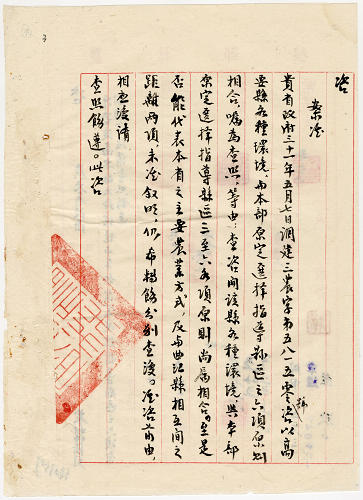 咨
案准
貴省政府三十一年五月七日調建三農字第五八一五零號咨以高
要縣各種環境，與本部原定選擇指導縣區之六項原則
相合，囑為查照，等由；查咨開該縣各種環境，與本部
原定選擇指導縣區三至六各項原則，尚屬相合。至是
否能代表本省之主要農業方式，及與曲江縣相互間之
距離兩項，未准敘明，仍希轉飭分別查復。准咨前由，
相應復請
查照飭遵。此咨